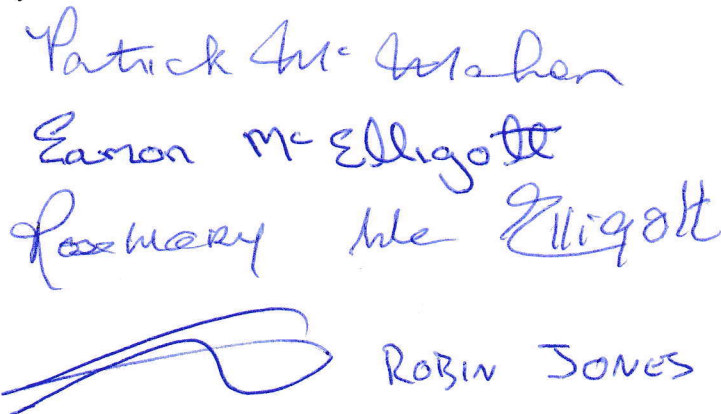 Patrick Mc Mahon
Eamon Mc Elligott
Rosemary Mc Elligott
ROBIN JONES